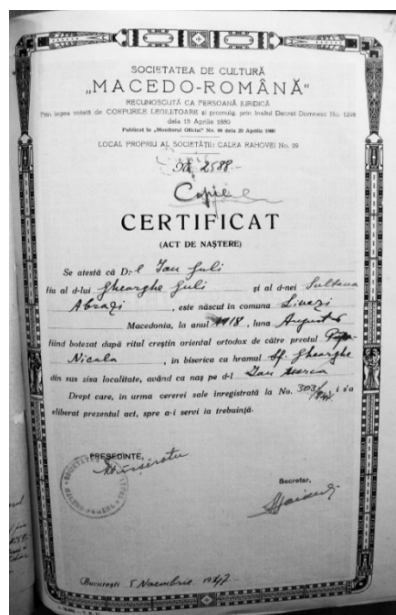 SOCIETATEA DE CULTURĂ
„MACEDO-ROMÂNĂ"
RECUNOSCUTĂ CA PERSOANĂ JURIDICĂ
Prin legea votată de CORPURILE LEGIUITOARE și promulg. prin Înaltul Decret Domnesc No. 1298
dela 15 Aprilie 1880
Publicat în „Monitorul Oficial" No. 98 dela 29 Aprilie 1880
LOCAL PROPRIU AL SOCIETĂȚII: CALEA RAHOVEI No. 29
2588
Copie
CERTIFICAT
(ACT DE NAȘTERE)
Se atestă că D-l Ion Guli
fiu al d-lui Gheorghe Guli și al d-nei Sultana
Abrazi, este născut în comuna Livezi
Macedonia, la anul 1918, luna August
fiind botezat după ritul creștin oriental ortodox de către preotul Papa
Nicola, în biserica cu hramul Sf. Gheorghe
din sus zisa localitate, având ca naș pe d-l Ion
Drept care, în urma cererei sale înregistrată la No. 303/947 i s'a
eliberat prezentul act, spre a-i servi la trebuință.
PREȘEDINTE,
Secretar,
București 5 Noembrie 1947